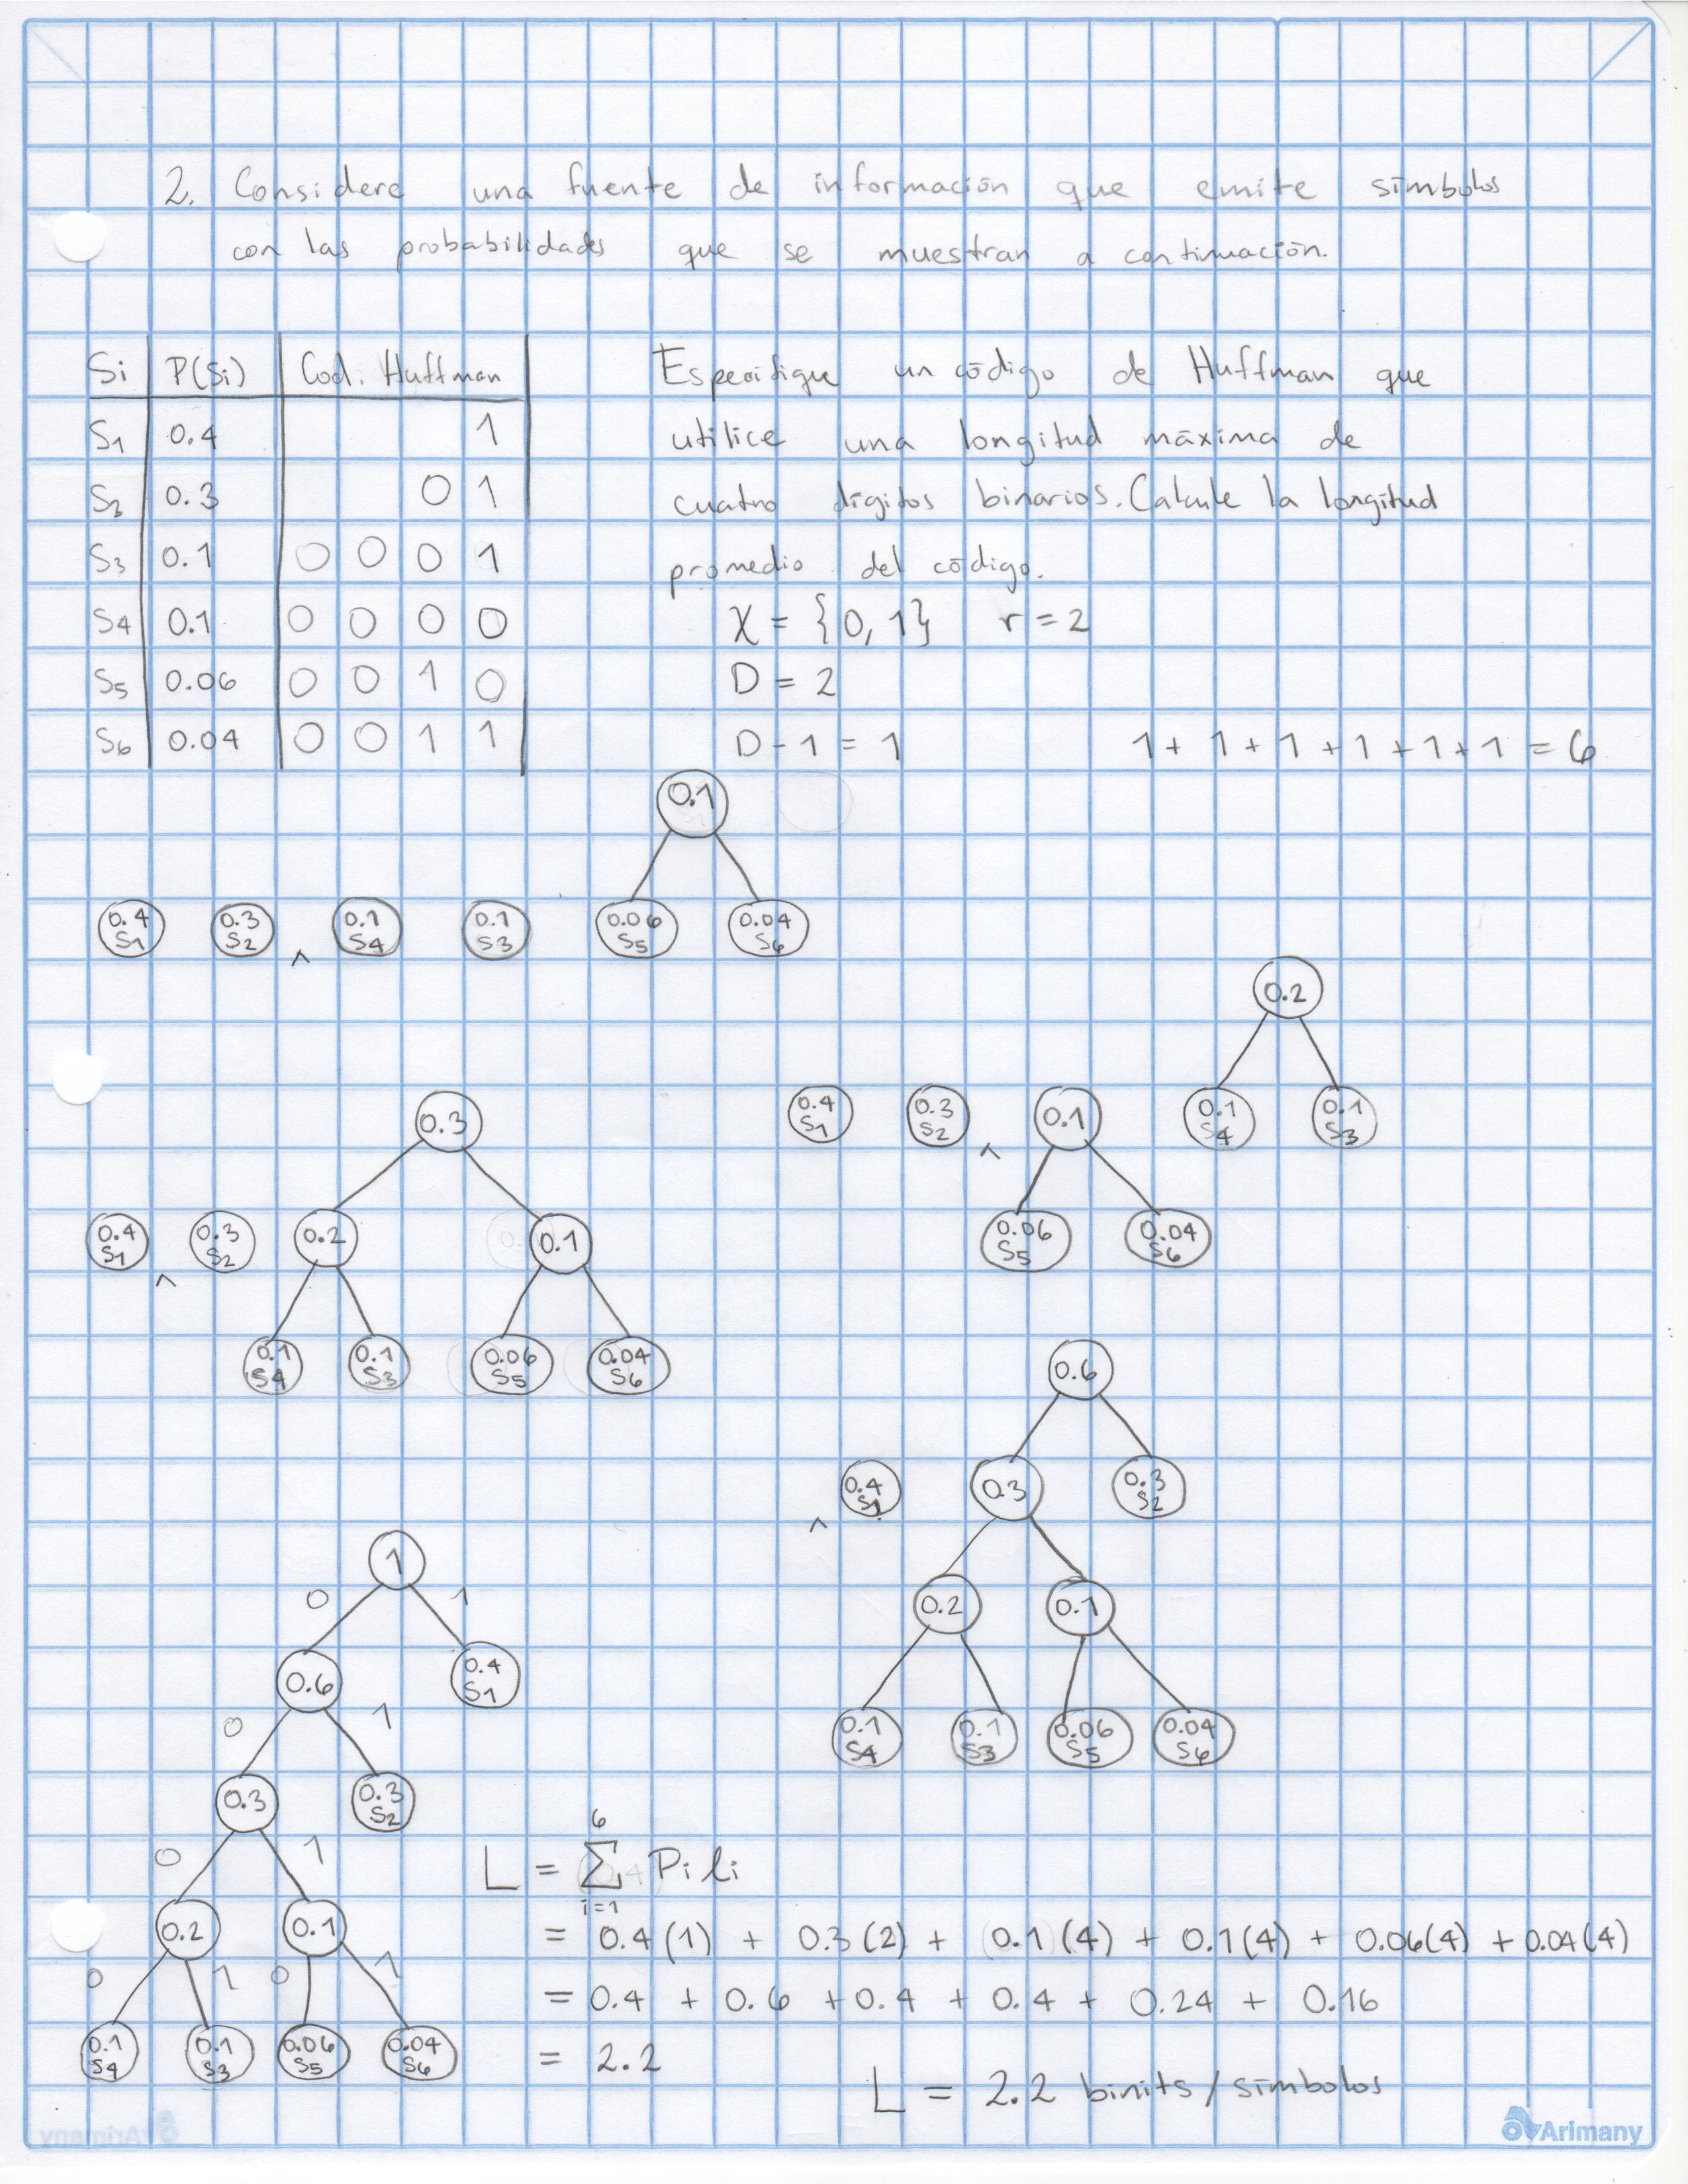 2. Considere una fuente de información que emite símbolos
con las probabilidades que se muestran a continuación.
Si P(Si) Cod. Huffman
S1 0.4 1
S2 0.3 0 1
S3 0.1 0 0 0 1
S4 0.1 0 0 0 0
S5 0.06 0 0 1 0
S6 0.04 0 0 1 1
Especifique un código de Huffman que
utilice una longitud máxima de
cuatro dígitos binarios. Calcule la longitud
promedio del código.
X = {0, 1} r = 2
D = 2
D - 1 = 1 1 + 1 + 1 + 1 + 1 + 1 = 6
0.1
0.4 S1 0.3 S2 ^ 0.1 S4 0.1 S3 0.06 S5 0.04 S6
0.2
0.4 S1 0.3 S2 ^ 0.1 0.1 S4 0.1 S3
0.06 S5 0.04 S6
0.3
0.4 S1 ^ 0.3 S2 0.2 0.1
0.1 S4 0.1 S3 0.06 S5 0.04 S6
0.6
^ 0.4 S1 0.3 0.3 S2
0.2 0.1
0.1 S4 0.1 S3 0.06 S5 0.04 S6
1
0 1
0.6 0.4 S1
0 1
0.3 0.3 S2
0 1
0.2 0.1
0 1 0 1
0.1 S4 0.1 S3 0.06 S5 0.04 S6
L = 6 Σ i=1 Pi li
= 0.4(1) + 0.3(2) + 0.1(4) + 0.1(4) + 0.06(4) + 0.04(4)
= 0.4 + 0.6 + 0.4 + 0.4 + 0.24 + 0.16
= 2.2
L = 2.2 binits/símbolos
Arimany